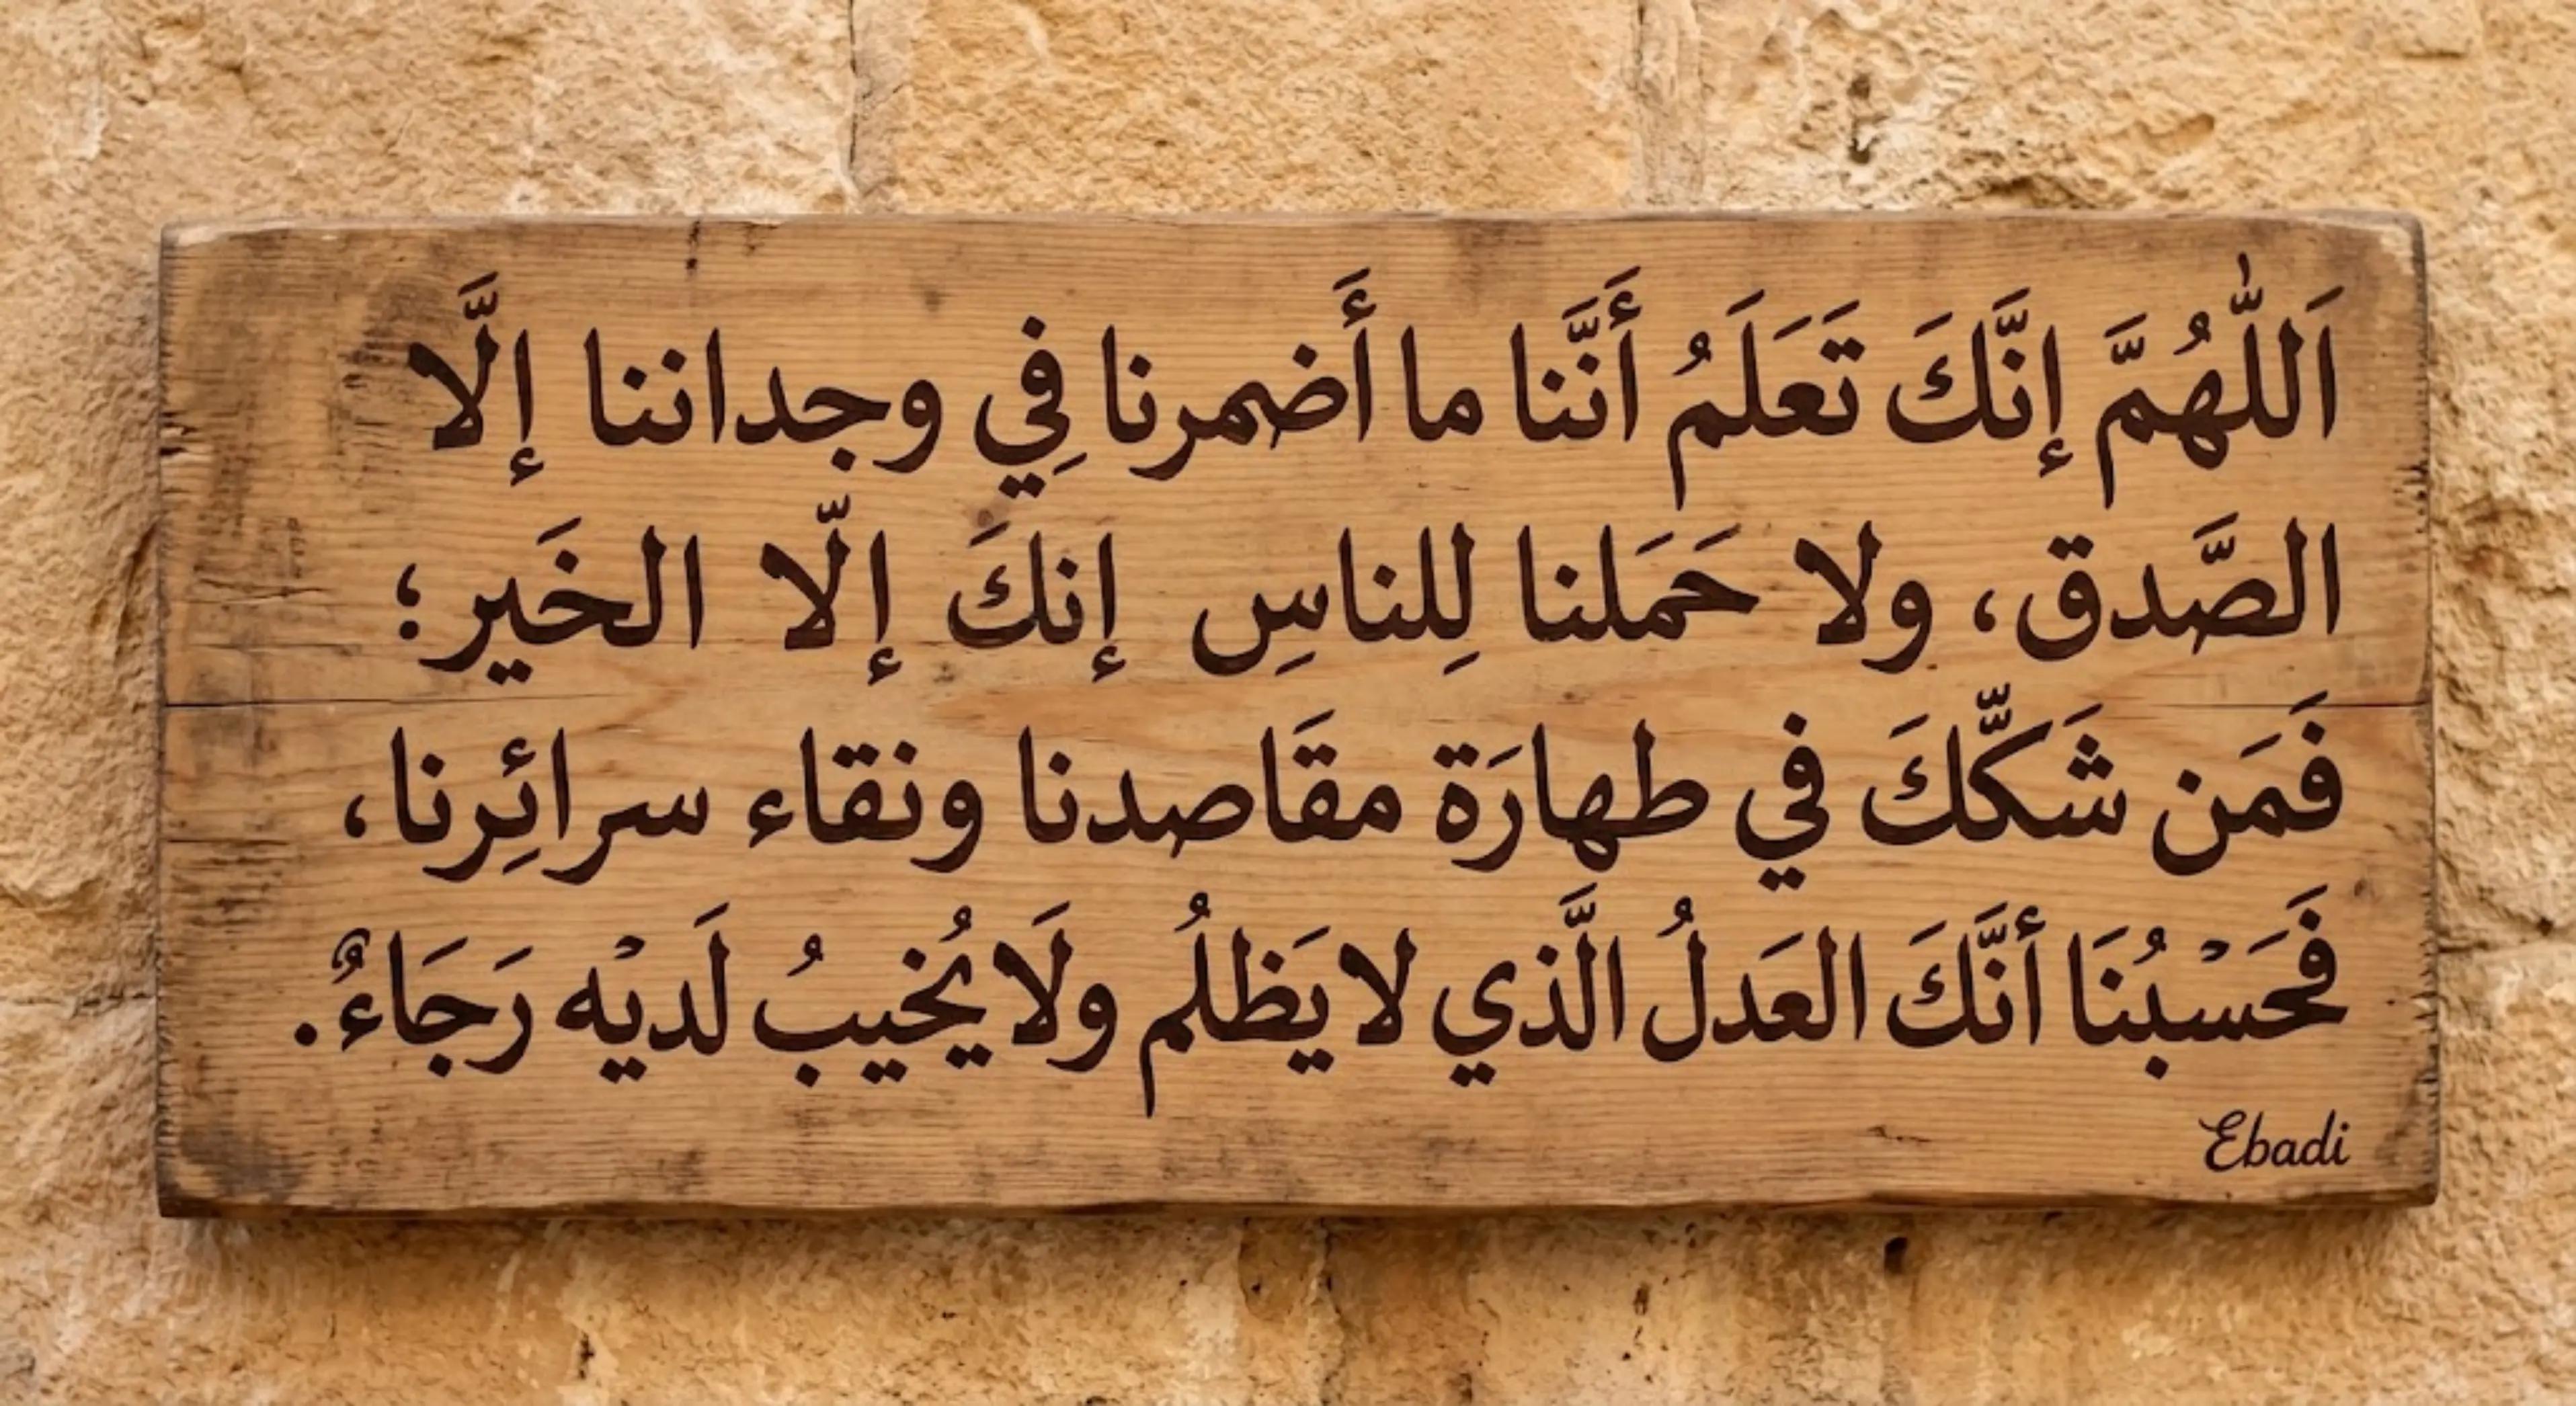 اَللّٰهُمَّ إنَّكَ تَعَلَمُ أَنَّنا ما أَضمرنا فِي وجداننا إلَّا
الصَّدق، ولا حَمَلنا لِلناسِ إنكَ إلّا الخَير؛
فَمَن شَكَّكَ في طهارَة مقَاصدنا ونقاء سرائِرنا،
فَحَسْبُنَا أنَّكَ العَدلُ الَّذي لا يَظلُم ولَا يُخيبُ لَديْه رَجَاءٌ.
Ebadi